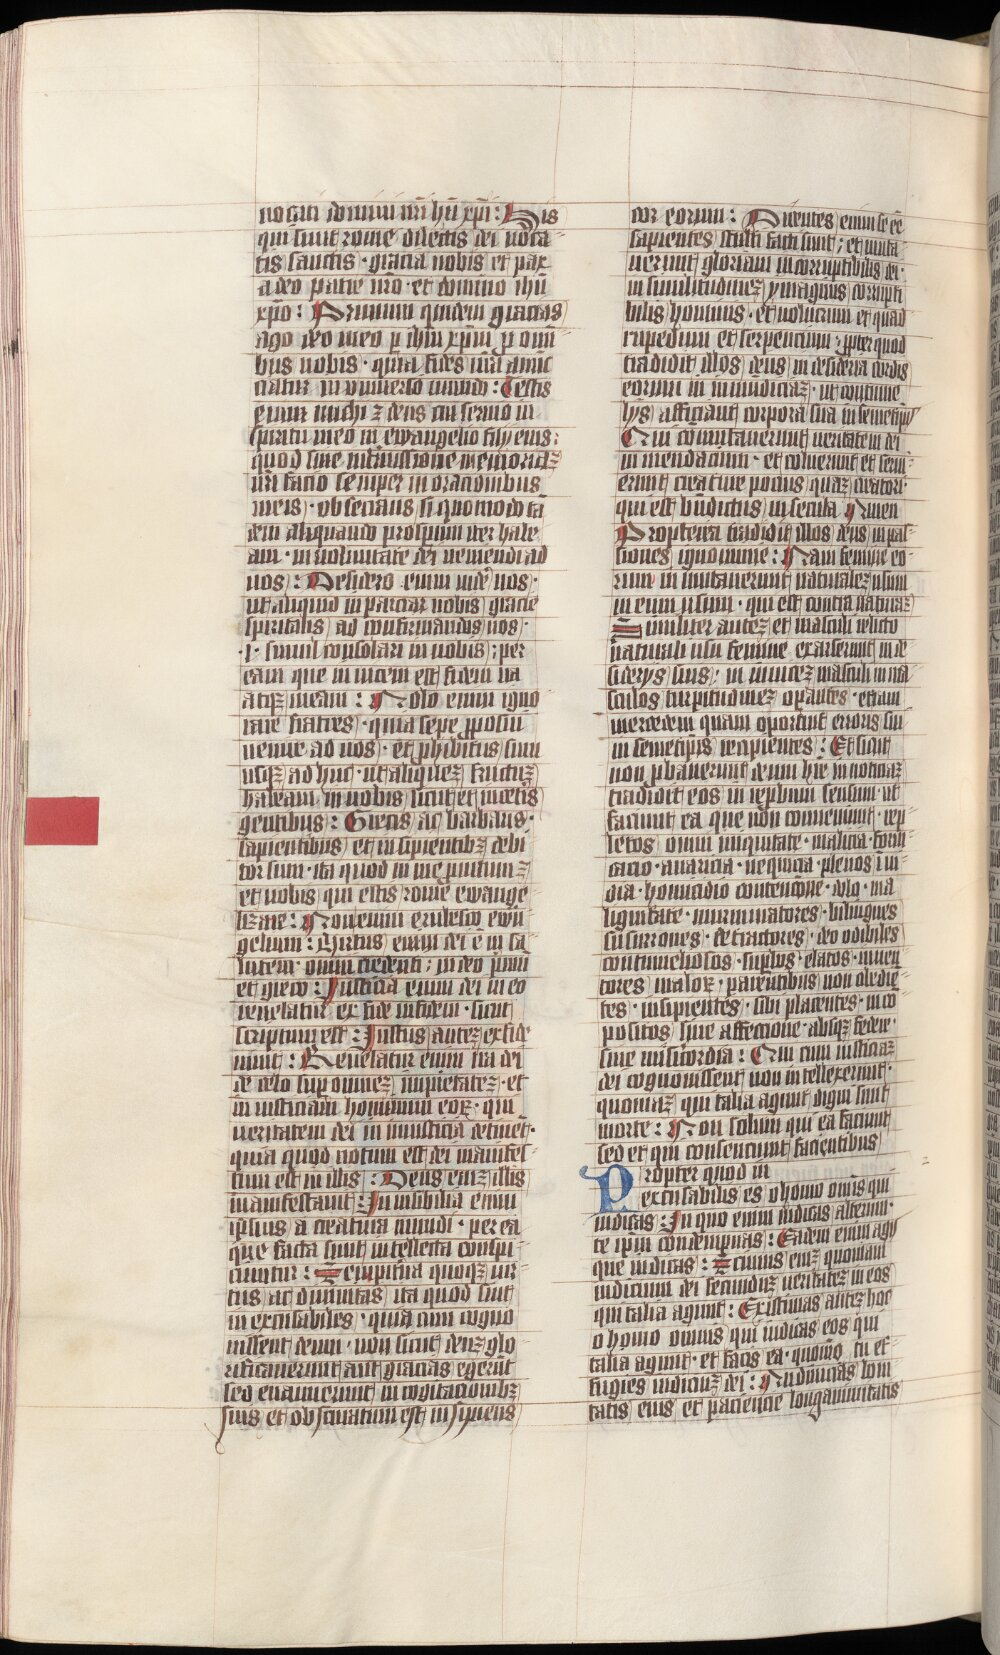 uocati domini nri ihu xpi : His
qui sunt rome dilectis dei uoca
tis sanctis · gracia nobis et pax
a deo patre nro · et domino ihu
xpo : Primum quidem gracias
ago deo meo p ihm xpm p omi
bus nobis · quia fides nra annc
ciatur in vniuerso mundo : Testis
enim michi ē deus cui seruio in
spiritu meo in ewangelio filij eius :
quod sine intermissione memoriā
uri facio semper in oracionibus
meis · obsecrans si quomodo tā
dem aliquando prosperum iter habe
am · in uoluntate dei ueniendi ad
uos : Desidero enim videre uos ·
ut aliquid inparciar uobis gracie
spiritalis ad confirmandos uos ·
·i· simul consolari in uobis ; per
eam que inuicem est fidem ūrā
atq meam : Nolo enim igno
rare fratres · quia sepe pposui
uenire ad uos · et phibitus sum
usq ad huc · ut aliquez fructuz
habeam in uobis sicut et in cetis
gentibus : Grecis ac barbaris ·
sapientibus et insipientibz debi
tor sum · ita quod in me pmtum ē
et uobis qui estis rome ewange
lizare : Non enim erubesco ewā
gelium : Virtus enim dei ē in sa
lutem omni credenti : iudeo pmū
et greco : Iusticia enim dei in eo
reuelatur ex fide in fidem · sicut
scriptum est : Iustus autez ex fide
uiuit : Reuelatur enim ira dei
de celo sup omnez impietatez · et
iniusticiam hominum eorz · qui
ueritatem dei in iniusticia detinet ·
quia quod notum est dei manifes
tum est in illis : Deus eniz illis
manifestauit : Inuisibilia enim
ipsius a creatura mundi · per ea
que facta sunt intellecta conspi
ciuntur : Sempitna quoqz uir
tus ac diuinitas ita quod sint
inexcusabiles · quia cum cogno
uissent deum · non sicut deuz glo
rificauerunt aut gracias egerūt
sed euanuerunt in cogitacionibz
suis et obscuratum est insipiens
cor eorum : Dicentes enim se eē
sapientes stulti facti sunt ; et muta
uerunt gloriam incorruptibilis dei ·
in similitudinez ymaginis corrupti
bilis hominis · et uolucrum et quad
rupedum et serpencium : ppter quod
tradidit illos deus in desideria cordis
eorum in inmundiciaz · ut contume
lijs afficiant corpora sua in semetipis
Qui cōmutauerunt ueritatem dei
in mendacium · et coluerunt et serui
erunt creature pocius quaz creatori ·
qui est bndictus in secula Amen
Propterea tradidit illos deus in pas
siones ignominie : Nam femine eo
rum inmutauerunt naturalez usum
in eum usum · qui est contra naturaz
Similiter autez et masculi relicto
naturali usu femine exarserunt in de
siderijs suis ; in inuicez masculi in ma
sculos turpitudinez opantes · etiam
mercedem quam oportuit erroris sui
in semetipis recipientes : Et sicut
non pbauerunt deum hre in noticiaz
tradidit eos in repbum sensum · ut
faciant ea que non conueniunt · rep
letos omni iniquitate · malicia · forni
cacio · auaricia · nequicia · plenos īui
dia · homicidio contencōne · dolo · ma
lignitate · murmuratores · bilingues
susurrones · detractores · deo odibiles
contumeliosos · supbos · elatos · inuen
tores malorz · parentibus non obedie
tes · insipientes · sibi placentes · inco
positos sine affectione · absqz federe ·
sine misicordia : Qui cum iusticiaz
dei cognouissent non intellexerunt ·
quoniaz qui talia agunt digni sunt
morte : Non solum qui ea faciunt
sed et qui consenciunt facientibus
Propter quod in
excusabilis es o homo omis qui
iudicas : In quo enim iudicas alterum ·
te ipm condempnas : Eadem enim agis
que iudicas : Scimus eniz quoniam
iudicium dei secunduz ueritatez in eos
qui talia agunt : Existimas autez hoc
o homo omnis qui iudicas eos qui
talia agunt · et facis ea · quomō tu ef
fugies iudiciuz dei : An diuicias boni
tatis eius et paciencie longanimitatis